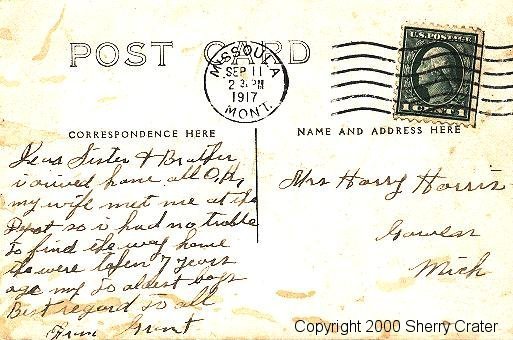 POST CARD
MISSOULA
SEP 11
2 3 PM
1917
MONT.
U.S. POSTAGE
1 CENT 1
CORRESPONDENCE HERE
NAME AND ADDRESS HERE
Dear Sister & Brather
i arived hame all O.K,
my wife met me at the
Depot so i had no trable
to find the way home
the were taken 7 years
ago my to oldest boys
Best regard to all
From Grant
Mrs Harry Harris
Gowen
Mich
Copyright 2000 Sherry Crater